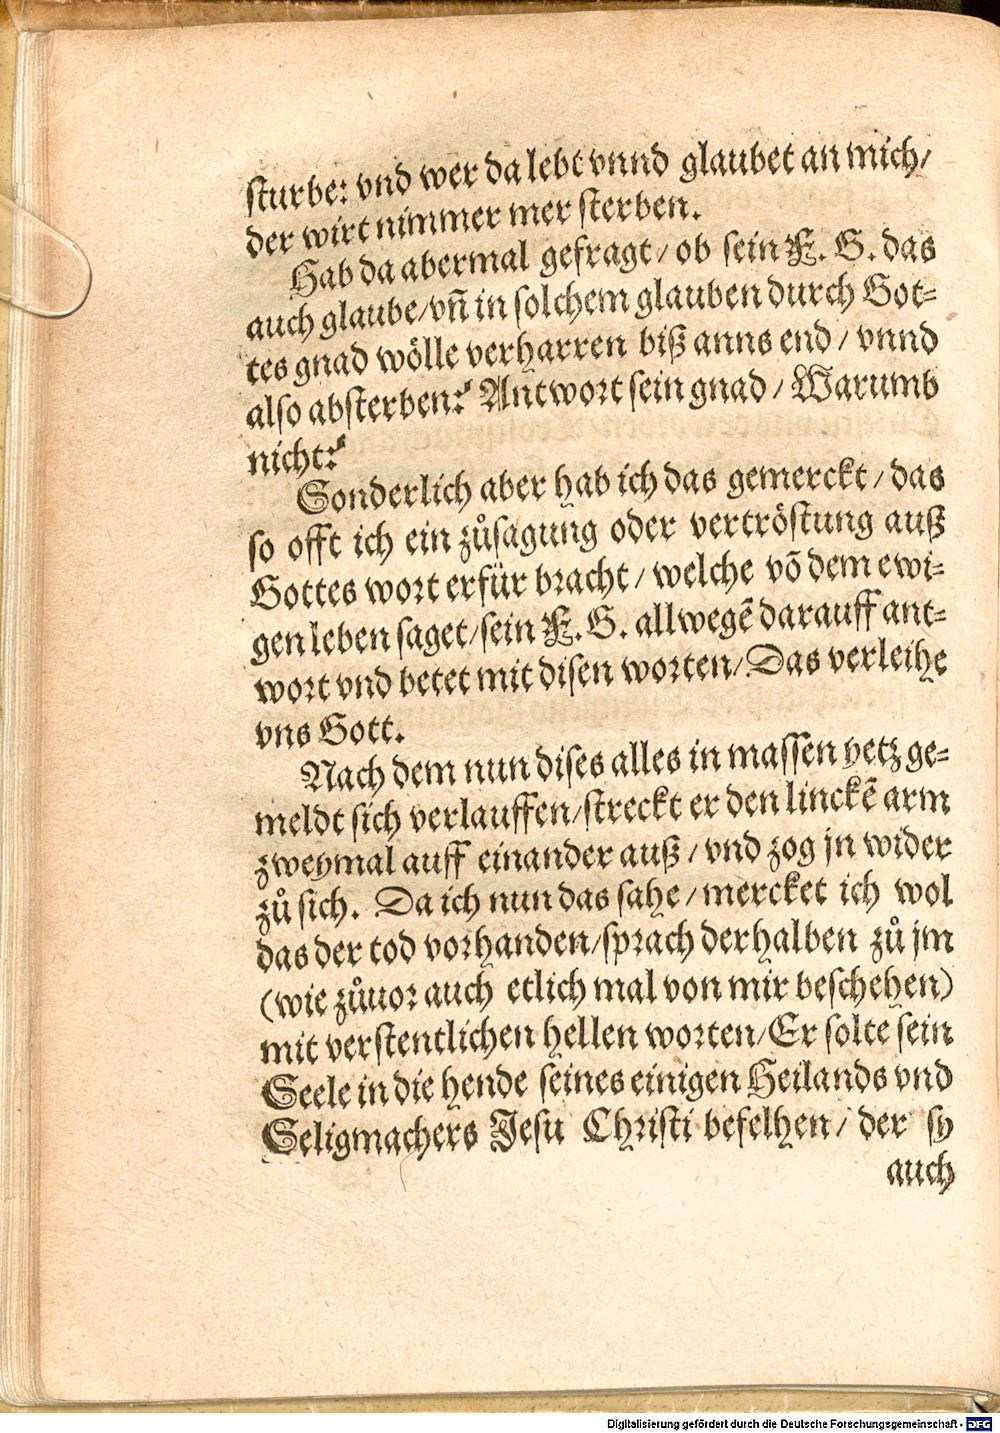 sturbe: vnd wer da lebt vnnd glaubet an mich/
der wirt nimmer mer sterben.
Hab da abermal gefragt/ ob sein F. G. das
auch glaube/vñ in solchem glauben durch Got-
tes gnad wölle verharren biß anns end/ vnnd
also absterben? Antwort sein gnad/ Warumb
nicht?
Sonderlich aber hab ich das gemerckt/ das
so offt ich ein zůsagung oder vertröstung auß
Gottes wort erfür bracht/ welche võ dem ewi-
gen leben saget/sein F. G. allwegẽ darauff ant-
wort vnd betet mit disen worten/ Das verleihe
vns Gott.
Nach dem nun dises alles in massen yetz ge-
meldt sich verlauffen/streckt er den linckẽ arm
zweymal auff einander auß/ vnd zog jn wider
zů sich. Da ich nun das sahe/ mercket ich wol
das der tod vorhanden/sprach derhalben zů jm
(wie zůuor auch etlich mal von mir beschehen)
mit verstentlichen hellen worten/Er solte sein
Seele in die hende seines einigen Heilands vnd
Seligmachers Jesu Christi befelhen/ der sy
auch
Digitalisierung gefördert durch die Deutsche Forschungsgemeinschaft - DFG